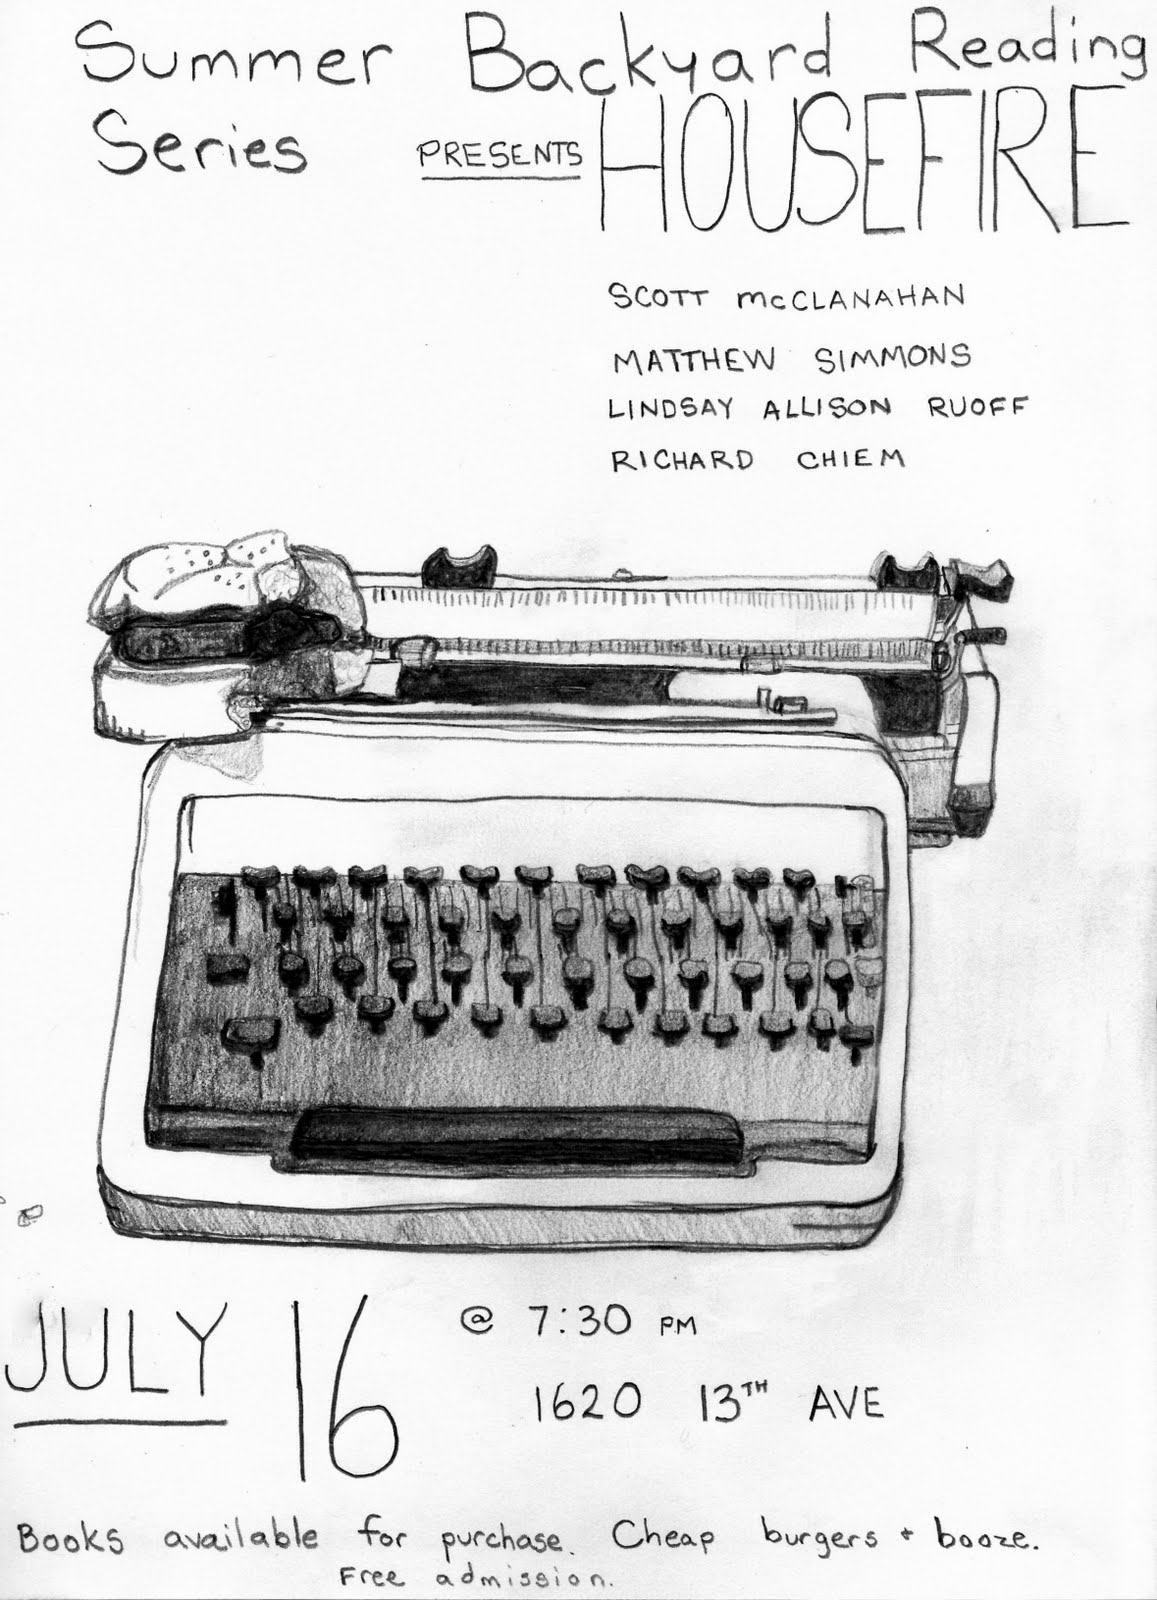 Summer Backyard Reading
Series PRESENTS HOUSEFIRE
SCOTT McCLANAHAN
MATTHEW SIMMONS
LINDSAY ALLISON RUOFF
RICHARD CHIEM
JULY 16 @ 7:30 PM
1620 13TH AVE
Books available for purchase. Cheap burgers + booze.
Free admission.